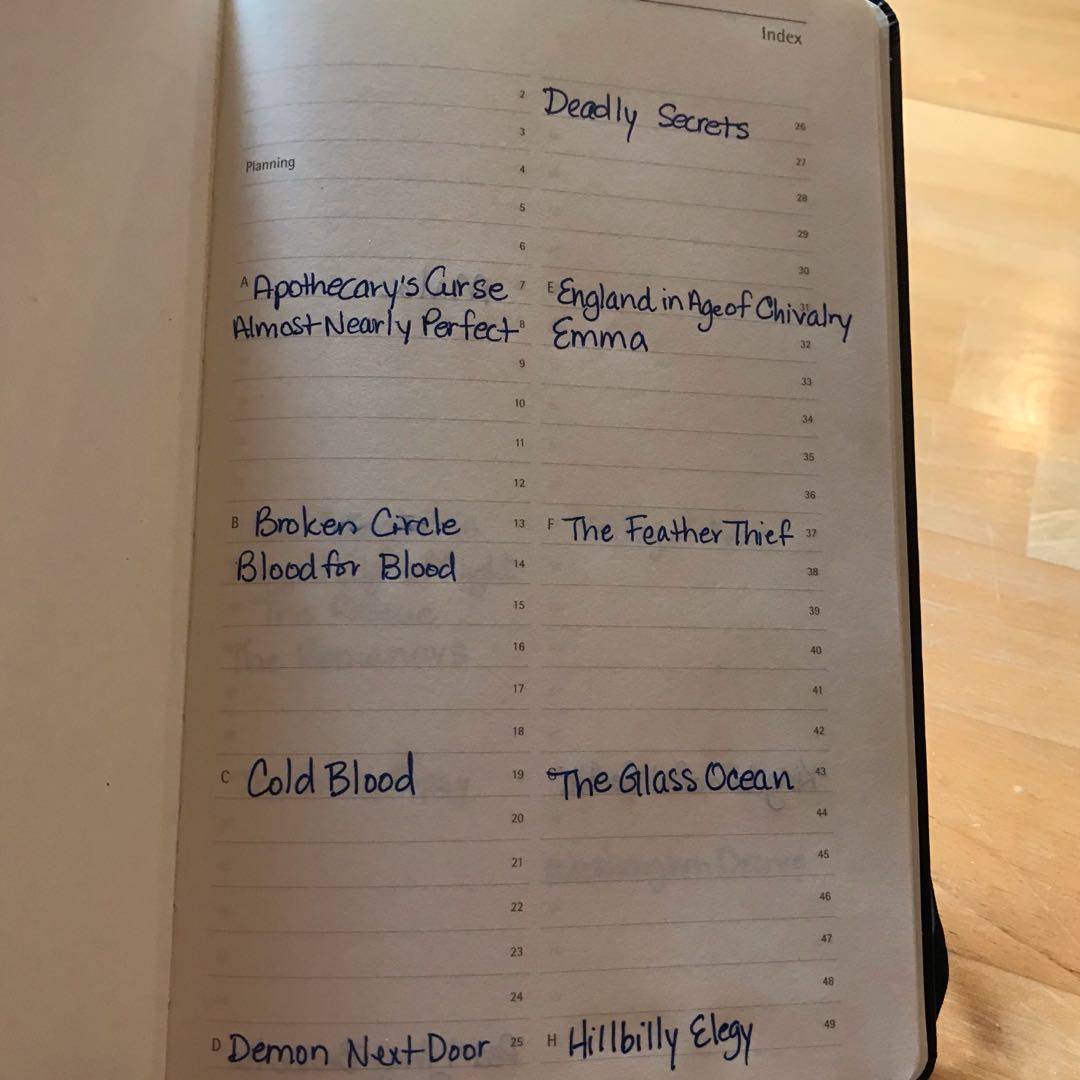 Index
2
3
Planning 4
5
6
A Apothecary's Curse 7
Almost Nearly Perfect 8
9
10
11
12
B Broken Circle 13
Blood for Blood 14
15
16
17
18
C Cold Blood 19
20
21
22
23
24
D Demon Next Door 25
Deadly Secrets 26
27
28
29
30
E England in Age of Chivalry 31
Emma 32
33
34
35
36
F The Feather Thief 37
38
39
40
41
42
G The Glass Ocean 43
44
45
46
47
48
H Hillbilly Elegy 49